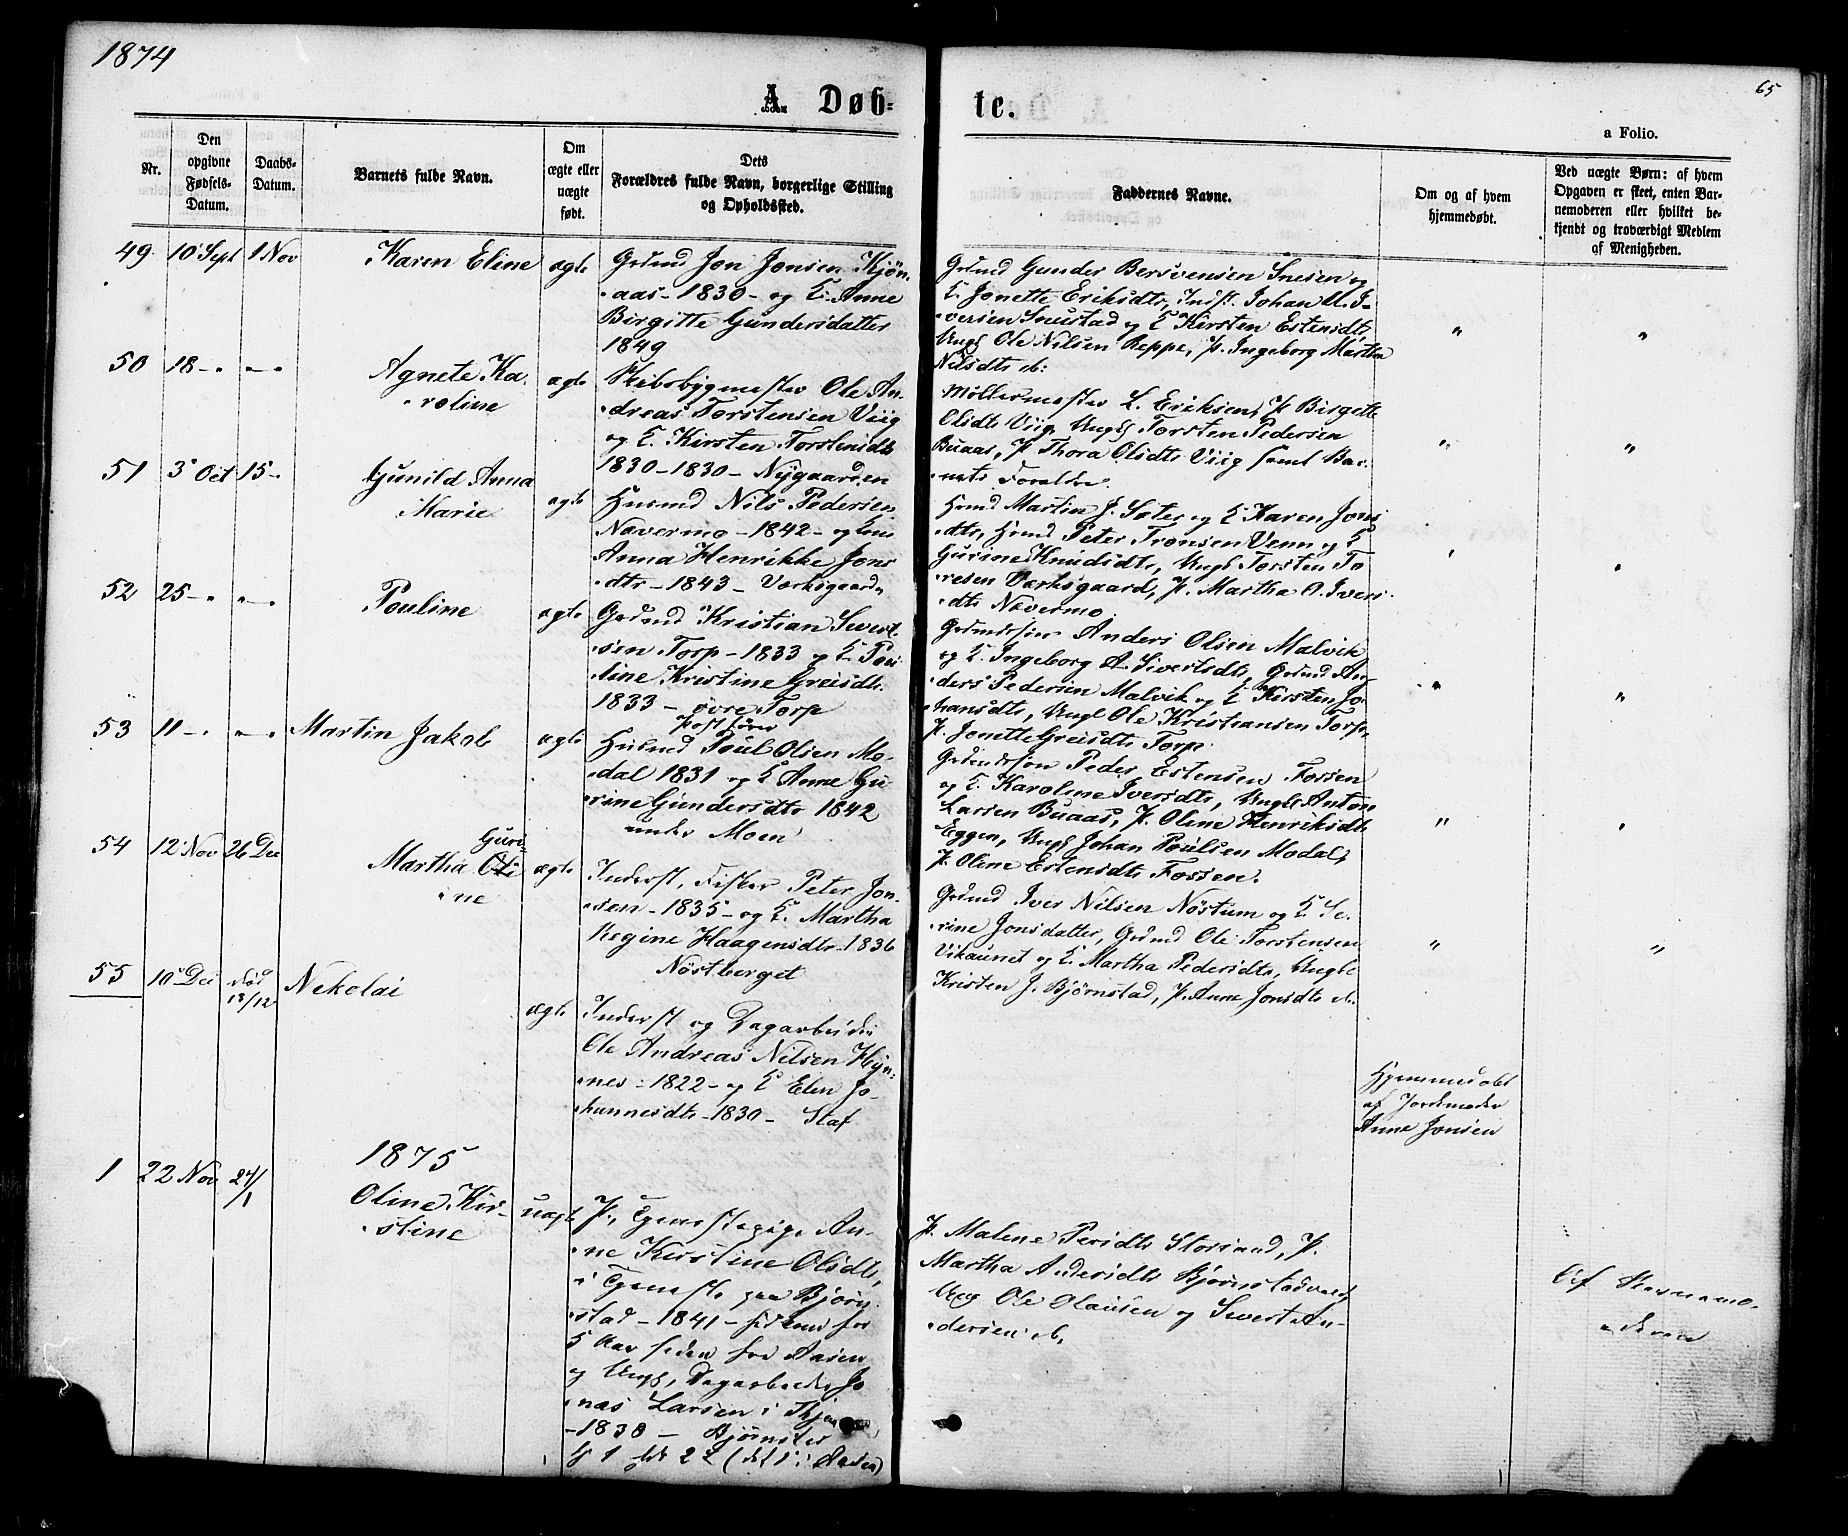 1874
65
A. Døb-
te.
a Folio.
Nr.
Den
opgivne
Fødsels-
Datum.
Daabs-
Datum.
Barnets fulde Navn.
Om
ægte eller
uægte
født.
Dets
Forældres fulde Navn, borgerlige Stilling
og Opholdssted.
Faddernes Navne.
Om og af hvem
hjemmedøbt.
Ved uægte Børn: af hvem
Opgaven er skeet, enten Bar-
nemoderen eller hvilket be-
kjendt og troværdigt Medlem
af Menigheden.
49. 10 Sept 1 Nov Karen Eline ægte
Grdmd Jon Jonsen Kjøn-
aas - 1830 - og K. Anne
Birgitte Gundersdatter
1849
Grdmd Gunder Bersvensen Snesen og
K. Jonette Eriksdtr, Indst. Johan M. I-
versen Sneistad og K Kirsten Estensdtr
Ungk Ole Nilsen Reppe, P. Ingeborg Martha
Nilsdtr
50 18 - " " - " Agnete Ka-
roline ægte
Skibsbygmester Ole An-
dreas Torstensen Viig
og K. Kirsten Torstensdtr
1830 - 1830 - Nygaarden
Møllermester L. Eriksen, P Birgitte
Olsdtr Viig, Ungk Torsten Pedersen
Buaas, P Thora Olsdtr Viig samt Bar-
nets Forældre.
51 3 Oct 15 - " Gunild Anna
Marie ægte
Husmd Nils Pedersen
Nævermo - 1842 - og
Anna Henrikke Jons
dtr - 1843 - Værksgaarden
Hsmd Martin J. Sæter og K Karen Jons
dtr, Hsmd Peter Tronsen Venn og K
Gurine Knudsdtr, Ungk Torsten To
resen Værksgaard, P. Martha O. Ivers
dtr Nævermo.
52 25 - " " - " Pouline ægte
Grdmd Kristian Sivert-
sen Torp - 1833 og K. Pou-
line Kristine Greisdtr
1833 - øvre Torp
Grdmdssøn Anders Olsen Malvik
og K. Ingeborg A. Sivertsdtr, Grdmd An-
ders Pedersen Malvik og K Kirsten Jo-
hansdtr, Ungk Ole Kristiansen Torp
P. Jonette Greisdtr Torp.
53 11 - " " - " Martin Jakob ægte
Postfører
Husmd Poul Olsen Mo-
dal 1831 og K Anne Gu
rine Gundersdtr 1842
under Moen
Grdmdssøn Peder Estensen Fossen
og K. Karoline Iversdtr, Ungk Anton
Larsen Buaas, P. Oline Henriksdtr
Eggen, Ungk Johan Poulsen Modal,
P. Oline Estensdtr Fossen.
54 12 Nov 26 Dec
Guri-
Martha
ne ægte
Inderst, Fisker Peter Jon-
sen - 1835 - og K. Martha
Regine Haagensdtr 1836
Nöstberget
Grdmd Iver Nilsen Nöstum og K Se-
rine Jonsdatter, Grdmd Ole Torstensen
Vikaunet og K. Martha Pedersdtr, Ungk
Kristen J. Bjørnstad, P. Anne Jonsdtr
55 10 Dec død
13/12 Nekolai ægte
Inderst og Dagarbeider
Ole Andreas Nilsen Høy-
nes - 1822 - og K Elen Jo-
hannesdtr - 1830 - Staf
Hjemmedøbt
af Jordemoder
Anne Jonsen
1875
1 22 Nov 24/1 Oline Kir-
stine uægte
P., Tjenestepige An-
ne Kirstine Olsdtr,
i Tjeneste paa Bjørn
stad - 1841 - for
5 Aar siden fra Aasen
og Ungk, Dagarbeider Jo
nas Larsen i
- 1838 - Bjørnstad
1 2 (det 1 i Aasen)
P. Malene Persdtr Storsand, P.
Martha Andersdtr Bjørnstadvald
Ung Ole Olausen og Sivert An-
dersen
Af Barnemo-
deren